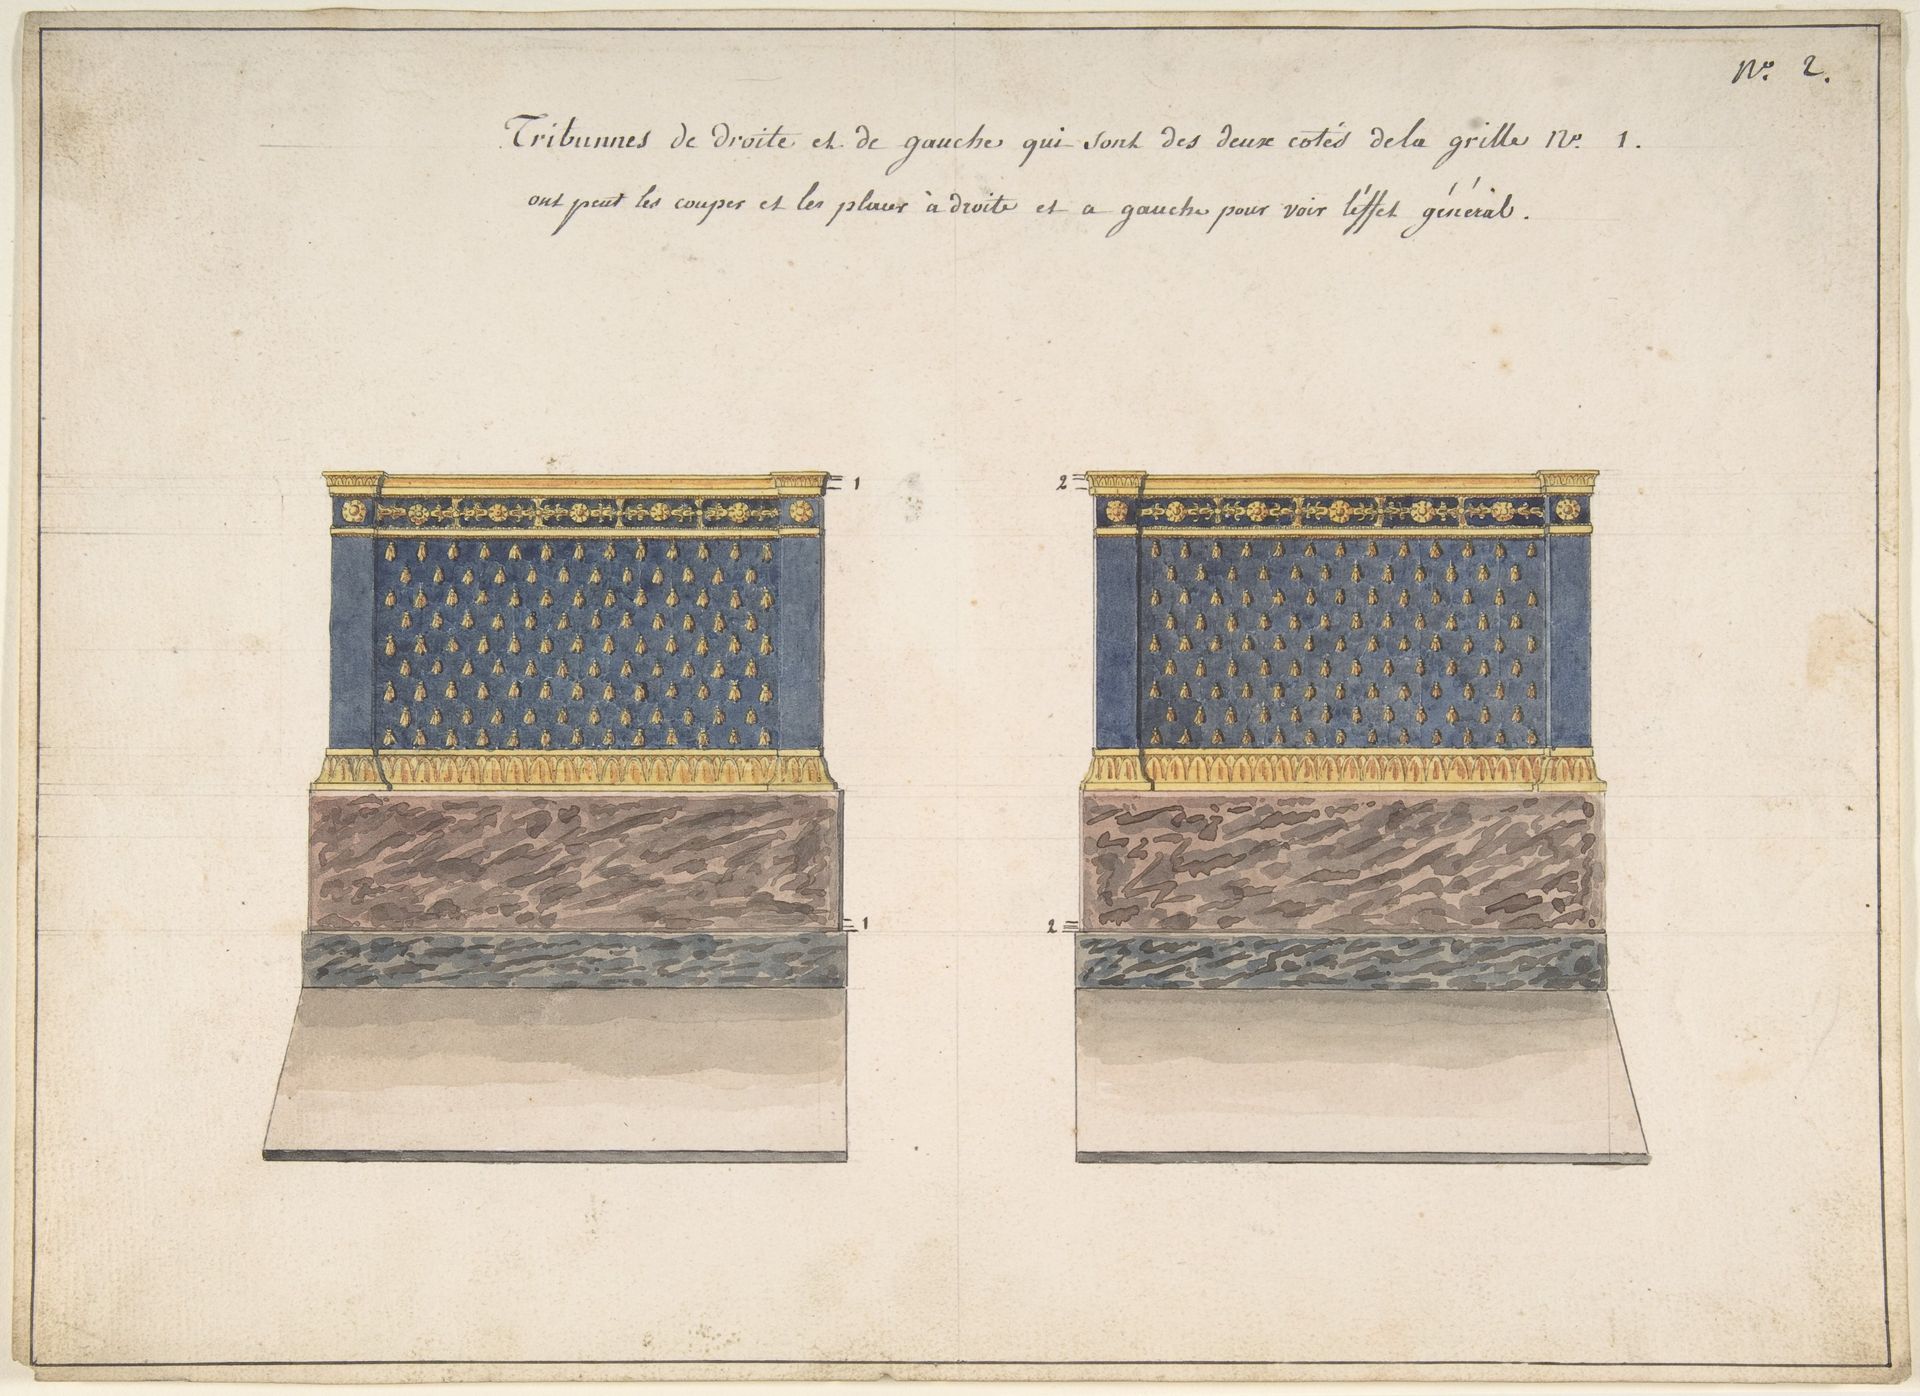 Nº. 2.
Tribunnes de droite et de gauche qui sont des deux cotés dela grille Nº. 1.
ont peut les couper et les placer à droite et a gauche pour voir l'éffet général.
1
2
1
2